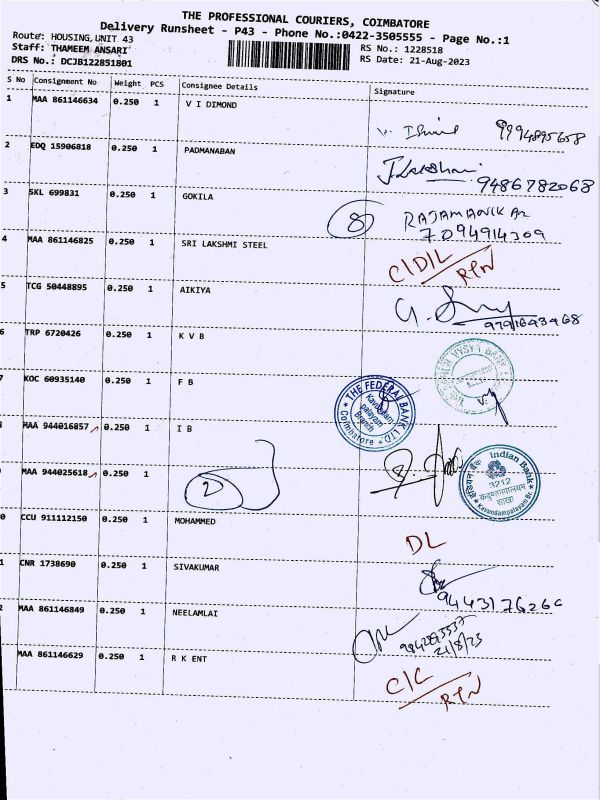 THE PROFESSIONAL COURIERS, COIMBATORE
Delivery Runsheet - P43 - Phone No.:0422-3505555 - Page No.:1
Route: HOUSING,UNIT 43
Staff: THAMEEM ANSARI
RS No.: 1228518
DRS No.: DCJB122851801
RS Date: 21-Aug-2023
S No Consignment No Weight PCS Consignee Details Signature
1 MAA 861146634 0.250 1 V I DIMOND
9994895658
2 EDQ 15906818 0.250 1 PADMANABAN
9486782068
3 SKL 699831 0.250 1 GOKILA
8
RAJAMANIKAM
7094914309
4 MAA 861146825 0.250 1 SRI LAKSHMI STEEL
C/D/L
RTN
5 TCG 50448895 0.250 1 AIKIYA
6 TRP 6720426 0.250 1 K V B
VYSYA BANK
7 KOC 60935140 0.250 1 F B
THE FEDERAL BANK LTD.
Kavundam
palayam
Branch
Coimbatore
MAA 944016857 0.250 1 I B
Indian Bank
3212
शाखा
Kavundampalayam Br.
MAA 944025618 0.250 1
2
0 CCU 911112150 0.250 1 MOHAMMED
DL
1 CNR 1738690 0.250 1 SIVAKUMAR
2 MAA 861146849 0.250 1 NEELAMLAI
21/8/23
MAA 861146629 0.250 1 R K ENT
C/C
RTN